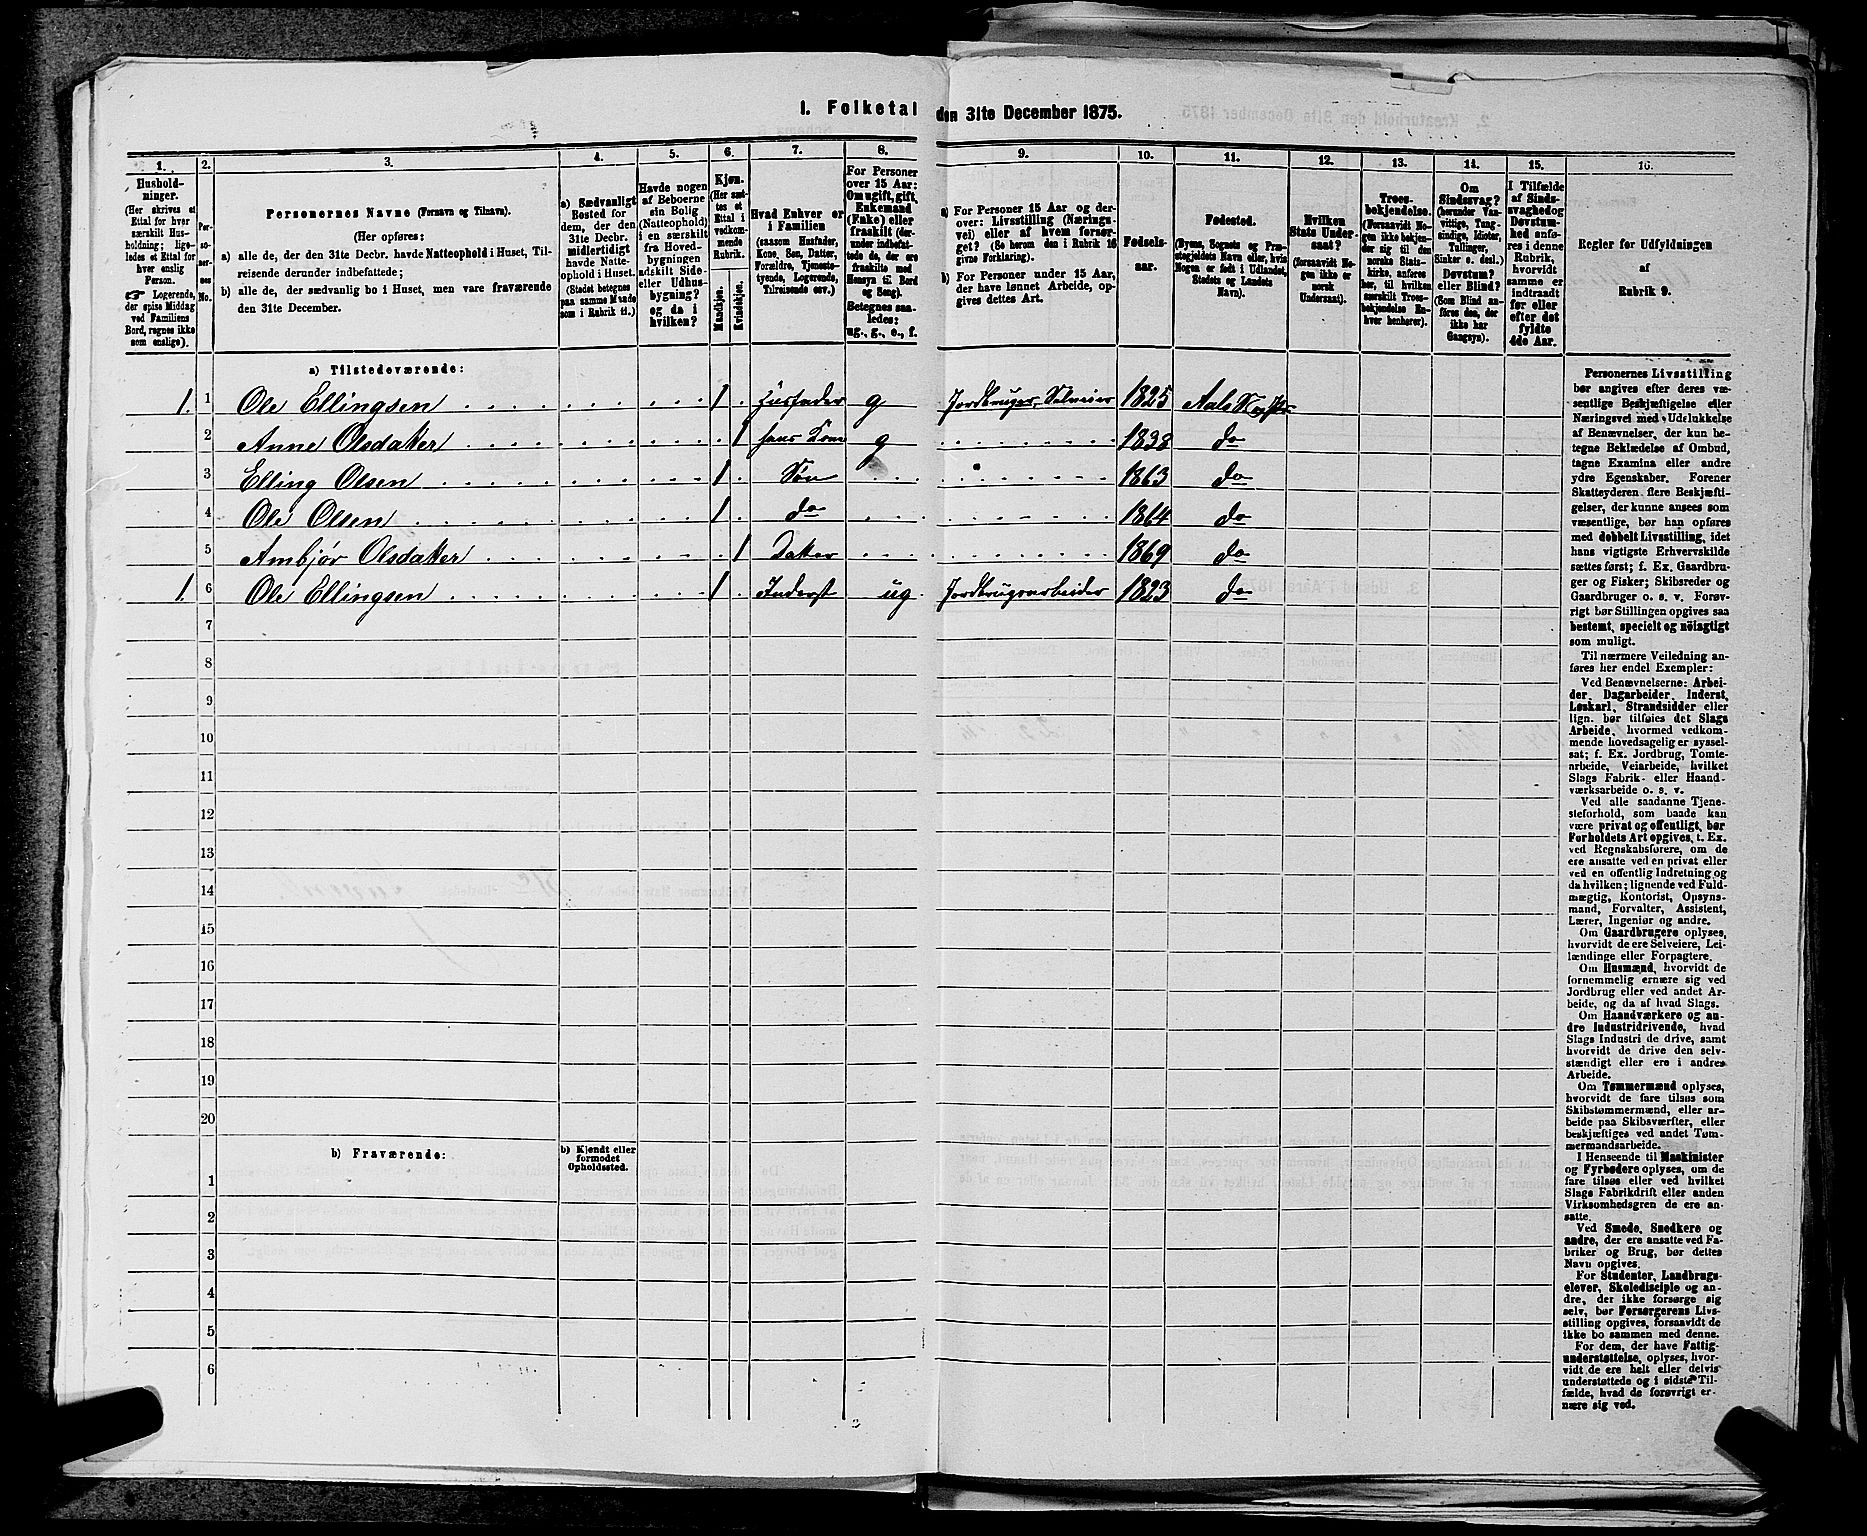 1. Folketal den 31te December 1875.
1. 2. 3. 4. 5. 6. 7. 8. 9. 10. 11. 12. 13. 14. 15. 16.
Hushold-
ninger.
(Her skrives et
Ettal for hver
særskilt Hus-
holdning; lige-
ledes et Ettal for
hver enslig
Person.
☞ Logerende,
der spise Middag
ved Familiens
Bord, regnes ikke
som enslige).
Per-
so-
ner-
nes
No.
Personernes Navne (Fornavn og Tilnavn).
(Her opføres:
a) alle de, der den 31te Decbr. havde Natteophold i Huset, Til-
reisende derunder indbefattede;
b) alle de, der sædvanlig bo i Huset, men vare fraværende
den 31te December.
a) Sædvanligt
Bosted for
dem, der den
31te Decbr.
midlertidigt
havde Natte-
ophold i Huset.
(Stedet betegnes
paa samme Maade
som i Rubrik 11.)
Havde nogen
af Beboerne
sin Bolig
(Natteophold)
i en særskilt
fra Hoved-
bygningen
adskilt Side-
eller Udhus-
bygning?
og da i
hvilken?
Kjøn.
(Her sæt-
tes et
Ettal i
vedkom-
mende
Rubrik.
Mandkjøn.
Kvindekjøn.
Hvad Enhver er
i Familien
(saasom Husfader,
Kone, Søn, Datter,
Forældre, Tjeneste-
tyende, Logerende,
Tilreisende osv.)
For Personer
over 15 Aar:
Om ugift, gift,
Enkemand
(Enke) eller
fraskilt (der-
under indbefat-
tede de, der ere
fraskilte med
Hensyn til Bord
og Seng).
Betegnes saa-
ledes:
ug., g., e., f.
a) For Personer 15 Aar og der-
over: Livsstilling (Nærings-
vei) eller af hvem forsør-
get? (Se herom den i Rubrik 16
givne Forklaring).
b) For Personer under 15 Aar,
der have lønnet Arbeide, op-
gives dettes Art.
Fødsels-
aar.
Fødested.
(Byens, Sognets og Præ-
stegjeldets Navn eller, hvis
Nogen er født i Udlandet,
Stedets og Landets
Navn).
Hvilken
Stats Under-
saat?
(forsaavidt No-
gen ikke er
norsk
Undersaat).
Troes-
bekjendelse.
(Forsaavidt No-
gen ikke bekjen-
der sig til den
norske Stats-
kirke, anføres
her, til hvilken
særskilt Troes-
bekjendelse En-
hver henhører).
Om
Sindssvag?
(herunder Van-
vittige, Tung-
sindige, Idioter,
Tullinger,
Sinker o. desl.)
Døvstum?
eller Blind?
(Som Blind an-
føres den, der
ikke har
Gangsyn).
I Tilfælde
af Sinds-
svaghed og
Døvstum-
hed anfø-
res i denne
Rubrik,
hvorvidt
samme er
indtraadt
før eller
efter det
fyldte
4de Aar.
Regler for Udfyldningen
af
Rubrik 9.
a) Tilstedeværende:
1. 1 Ole Ellingsen 1 Husfader g Jordbruger, Selveier 1825 Aals
2 Anne Olsdatter 1 hans Kone g 1838 do
3 Elling Olsen 1 Søn 1863 do
4 Ole Olsen 1 do 1864 do
5 Ambjør Olsdatter 1 Datter 1869 do
1. 6 Ole Ellingsen 1 Inderst ug Jordbrugsarbeider 1823 do
7
8
9
10
11
12
13
14
15
16
17
18
19
20
b) Fraværende:
b) Kjendt eller
formodet
Opholdssted.
1
2
3
4
5
6
Personernes Livsstilling
bør angives efter deres væ-
sentlige Beskjæftigelse eller
Næringsvei med Udelukkelse
af Benævnelser, der kun be-
tegne Beklædelse af Ombud,
tagne Examina eller andre
ydre Egenskaber. Forener
Skatteyderen flere Beskjæfti-
gelser, der kunne ansees som
væsentlige, bør han opføres
med dobbelt Livsstilling, idet
hans vigtigste Erhvervskilde
sættes først; f. Ex. Gaardbru-
ger og Fisker; Skibsreder og
Gaardbruger o. s. v. Forøv-
rigt bør Stillingen opgives saa
bestemt, specielt og nöiagtigt
som muligt.
Til nærmere Veiledning an-
føres her endel Exempler:
Ved Benævnelserne: Arbei-
der, Dagarbeider, Inderst,
Løskarl, Strandsidder eller
lign. bør tilføies det Slags
Arbeide, hvormed vedkom-
mende hovedsagelig er syssel-
sat; f. Ex. Jordbrug, Tomte-
arbeide, Veiarbeide, hvilket
Slags Fabrik- eller Haand-
værksarbeide o. s. v.
Ved alle saadanne Tjene-
steforhold, som baade kan
være privat og offentligt, bør
Forholdets Art opgives, t. Ex.
ved Regnskabsførere, om de
ere ansatte ved en privat eller
ved en offentlig Indretning og
da hvilken; lignende ved Fuld-
mægtig, Kontorist, Opsyns-
mand, Forvalter, Assistent,
Lærer, Ingeniør og andre.
Om Gaardbrugere oplyses,
hvorvidt de ere Selveiere, Lei-
lændinge eller Forpagtere.
Om Husmænd, hvorvidt de
fornemmelig ernære sig ved
Jordbrug eller ved andet Ar-
beide, og da af hvad Slags.
Om Haandværkere og an-
dre Industridrivende, hvad
Slags Industri de drive, samt
hvorvidt de drive den selv-
stændigt eller ere i andres
Arbeide.
Om Tømmermænd oplyses,
hvorvidt de fare tilsøs som
Skibstømmermænd, eller ar-
beide paa Skibsværfter, eller
beskjæftiges ved andet Tøm-
mermandsarbeide.
I Henseende til Maskinister
og Fyrbødere oplyses, om de
fare tilsøs eller ved hvilket
Slags Fabrikdrift eller anden
Virksomhedsgren de ere an-
satte.
Ved Smede, Snedkere og
andre, der ere ansatte ved Fa-
briker og Brug, bør dettes
Navn opgives.
For Studenter, Landbrugs-
elever, Skoledisciple og an-
dre, der ikke forsørge sig
selv, bør Forsørgerens Livs-
stilling opgives, forsaavidt de
ikke bo sammen med denne.
For dem, der have Fattig-
understøttelse, oplyses, hvor-
vidt de ere helt eller delvis
understøttede og i sidste Til-
fælde, hvad de forøvrigt er-
nære sig ved.